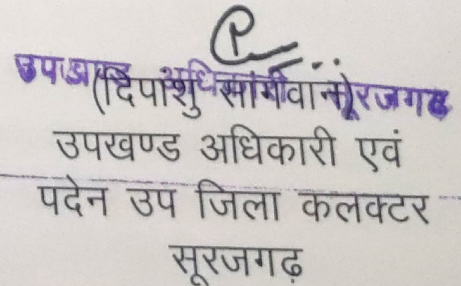 उपखण्ड अधिकारी सूरजगढ
(दिपांशु सांगवान)
उपखण्ड अधिकारी एवं
पदेन उप जिला कलक्टर
सूरजगढ़